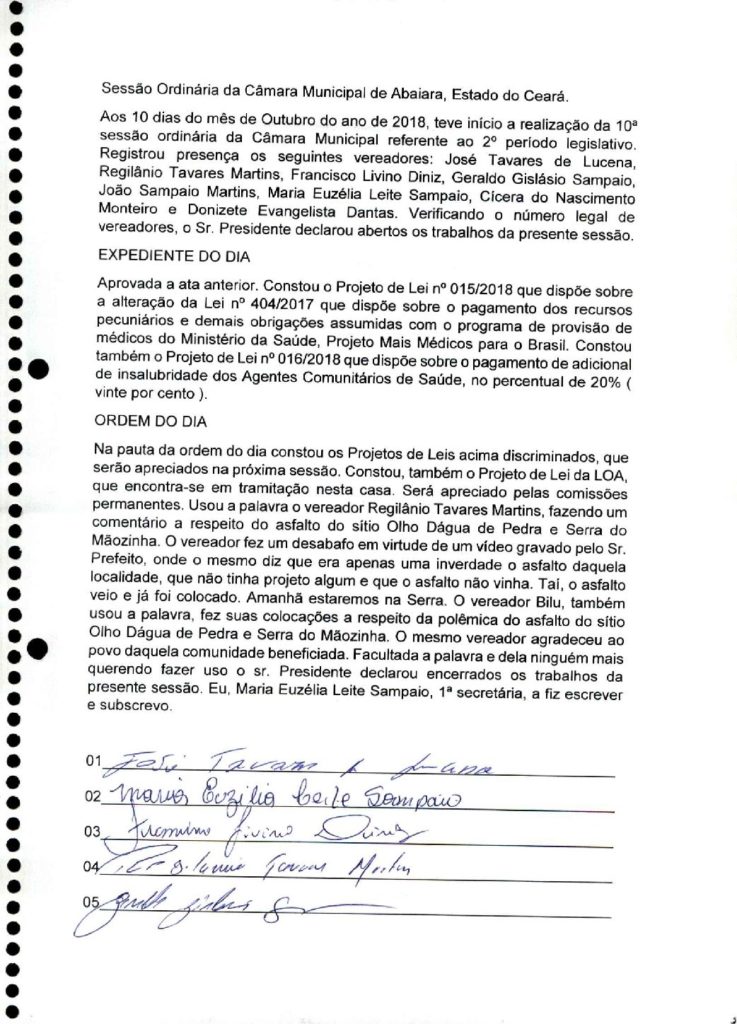 Sessão Ordinária da Câmara Municipal de Abaiara, Estado do Ceará.
Aos 10 dias do mês de Outubro do ano de 2018, teve início a realização da 10ª
sessão ordinária da Câmara Municipal referente ao 2º período legislativo.
Registrou presença os seguintes vereadores: José Tavares de Lucena,
Regilânio Tavares Martins, Francisco Livino Diniz, Geraldo Gislásio Sampaio,
João Sampaio Martins, Maria Euzélia Leite Sampaio, Cícera do Nascimento
Monteiro e Donizete Evangelista Dantas. Verificando o número legal de
vereadores, o Sr. Presidente declarou abertos os trabalhos da presente sessão.
EXPEDIENTE DO DIA
Aprovada a ata anterior. Constou o Projeto de Lei nº 015/2018 que dispõe sobre
a alteração da Lei nº 404/2017 que dispõe sobre o pagamento dos recursos
pecuniários e demais obrigações assumidas com o programa de provisão de
médicos do Ministério da Saúde, Projeto Mais Médicos para o Brasil. Constou
também o Projeto de Lei nº 016/2018 que dispõe sobre o pagamento de adicional
de insalubridade dos Agentes Comunitários de Saúde, no percentual de 20% (
vinte por cento ).
ORDEM DO DIA
Na pauta da ordem do dia constou os Projetos de Leis acima discriminados, que
serão apreciados na próxima sessão. Constou, também o Projeto de Lei da LOA,
que encontra-se em tramitação nesta casa. Será apreciado pelas comissões
permanentes. Usou a palavra o vereador Regilânio Tavares Martins, fazendo um
comentário a respeito do asfalto do sítio Olho Dágua de Pedra e Serra do
Mãozinha. O vereador fez um desabafo em virtude de um vídeo gravado pelo Sr.
Prefeito, onde o mesmo diz que era apenas uma inverdade o asfalto daquela
localidade, que não tinha projeto algum e que o asfalto não vinha. Taí, o asfalto
veio e já foi colocado. Amanhã estaremos na Serra. O vereador Bilu, também
usou a palavra, fez suas colocações a respeito da polêmica do asfalto do sítio
Olho Dágua de Pedra e Serra do Mãozinha. O mesmo vereador agradeceu ao
povo daquela comunidade beneficiada. Facultada a palavra e dela ninguém mais
querendo fazer uso o sr. Presidente declarou encerrados os trabalhos da
presente sessão. Eu, Maria Euzélia Leite Sampaio, 1ª secretária, a fiz escrever
e subscrevo.
01 José Tavares
02 Maria Euzélia Leite Sampaio
03 Livino Diniz
04 Tavares Martins
05